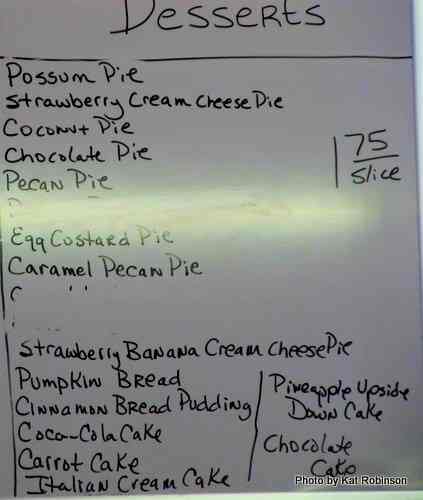 Desserts
Possum Pie
Strawberry Cream Cheese Pie
Coconut Pie
Chocolate Pie
Pecan Pie
1 75
Slice
Egg Costard Pie
Caramel Pecan Pie
Strawberry Banana Cream Cheese Pie
Pumpkin Bread
Cinnamon Bread Pudding
Coca-Cola Cake
Carrot Cake
Italian Cream Cake
Pineapple Upside
Down Cake
Chocolate
Cake
Photo by Kat Robinson